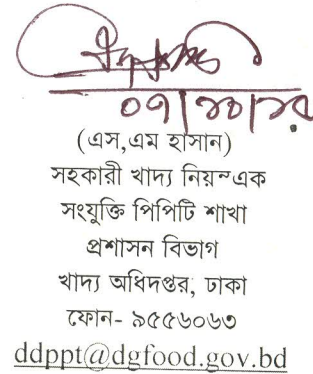 ০৭/১০/১২
(এস,এম হাসান)
সহকারী খাদ্য নিয়ন্এক
সংযুক্তি পিপিটি শাখা
প্রশাসন বিভাগ
খাদ্য অধিদপ্তর, ঢাকা
ফোন- ৯৫৫৬০৬৩
ddppt@dgfood.gov.bd